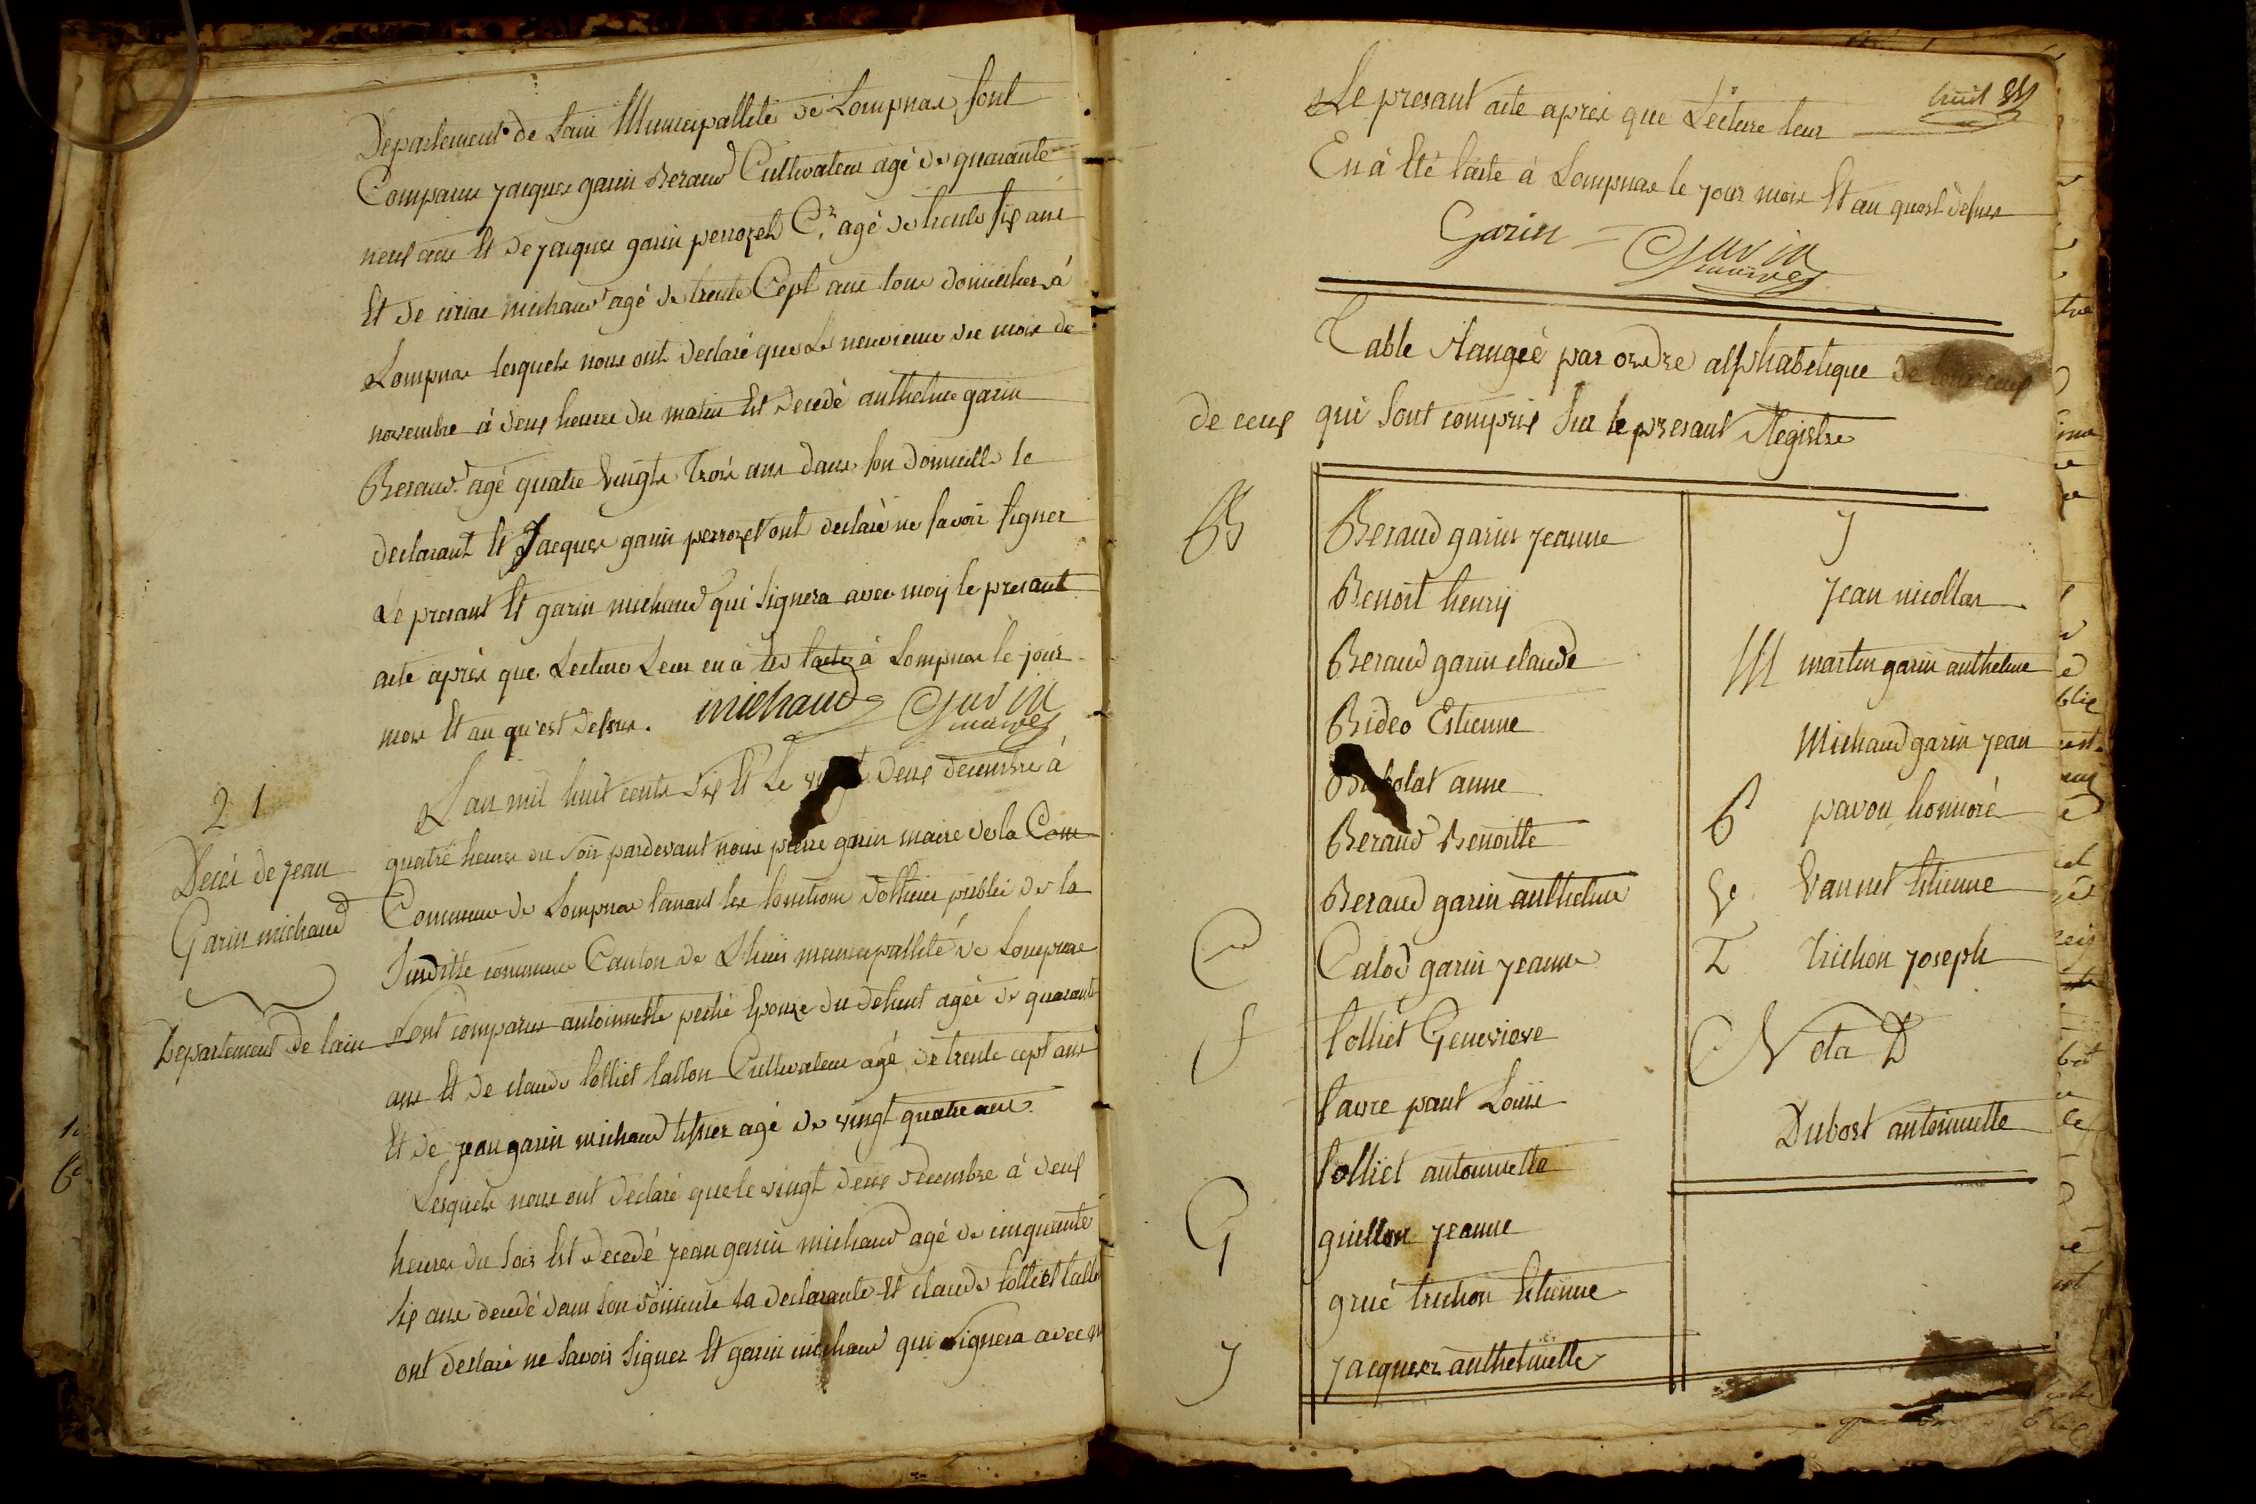 Departement de Lain Municipallité de Lompnas sont
Comparus jacques garin Beraud Cultivateur agé de quarante
neuf ans Et de jacques garin perrozet Cr agé de trente six ans
Et de ciriac michaud agé de trente Cept ans tous domicilies à
Lompnas lesquels nous ont declaré que Le neuvieme du mois de
novembre à deux heures du matin Est decedé anthelme garin
Beraud agé quatre vingts Trois ans dans son domicille le
declarant Et Jacques garin perrozet ont declaré ne savoir signer
Le presant Et garin michaud qui signera avec moy le presant
acte après que Lecture Leur en a été faite à Lompnas le jour
mois Et an qu'est dessus. michaud Garin
maire
21
Decés de jean
Garin michaud
Departement de lain
L'an mil huit cents six Et Le vingt deux decembre à
quatre heures du soir pardevant nous pierre garin maire de la Com
Commune de Lompnas faisant les fonctions d'officier public de la
Susditte commune Canton de Lhuis municipallité de Lompnas
sont comparus antoinette perié Epouze du defunt agée de quarante
ans Et de claude folliet tallon Cultivateur agé de trente cept ans
Et de jean garin michaud tissier agé de vingt quatre ans
Lesquels nous ont declaré que le vingt deux decembre à deux
heures du soir Est decedé jean garin michaud agé de cinquante
six ans decedé dans son domicile la declarante Et claude folliet tallon
ont declaré ne savoir signer Et garin michaud qui signera avec
huit
Le presant acte après que Lecture leur
En à Eté faite à Lompnas le jour mois Et an quest dessus
Garin Garin
maire
Table Rangée par ordre alphabetique de tous ceux
de ceux qui sont compris sur le presant Registre
B
Beraud garin jeanne
Benoit henry
Beraud garin claude
Bideo Estienne
anne
Beraud Benoitte
Beraud garin anthelme
C Calod garin jeanne
f folliet Genevieve
favre paul Louis
folliet antoinette
G guillon jeanne
grué trichon Etienne
J jacquer anthelmette
J
jean nicollas
M martin garin anthelme
Michaud garin jean
P pavou honnoré
V Vannet Etienne
T trichon joseph
Nota D
Dubost antoinette